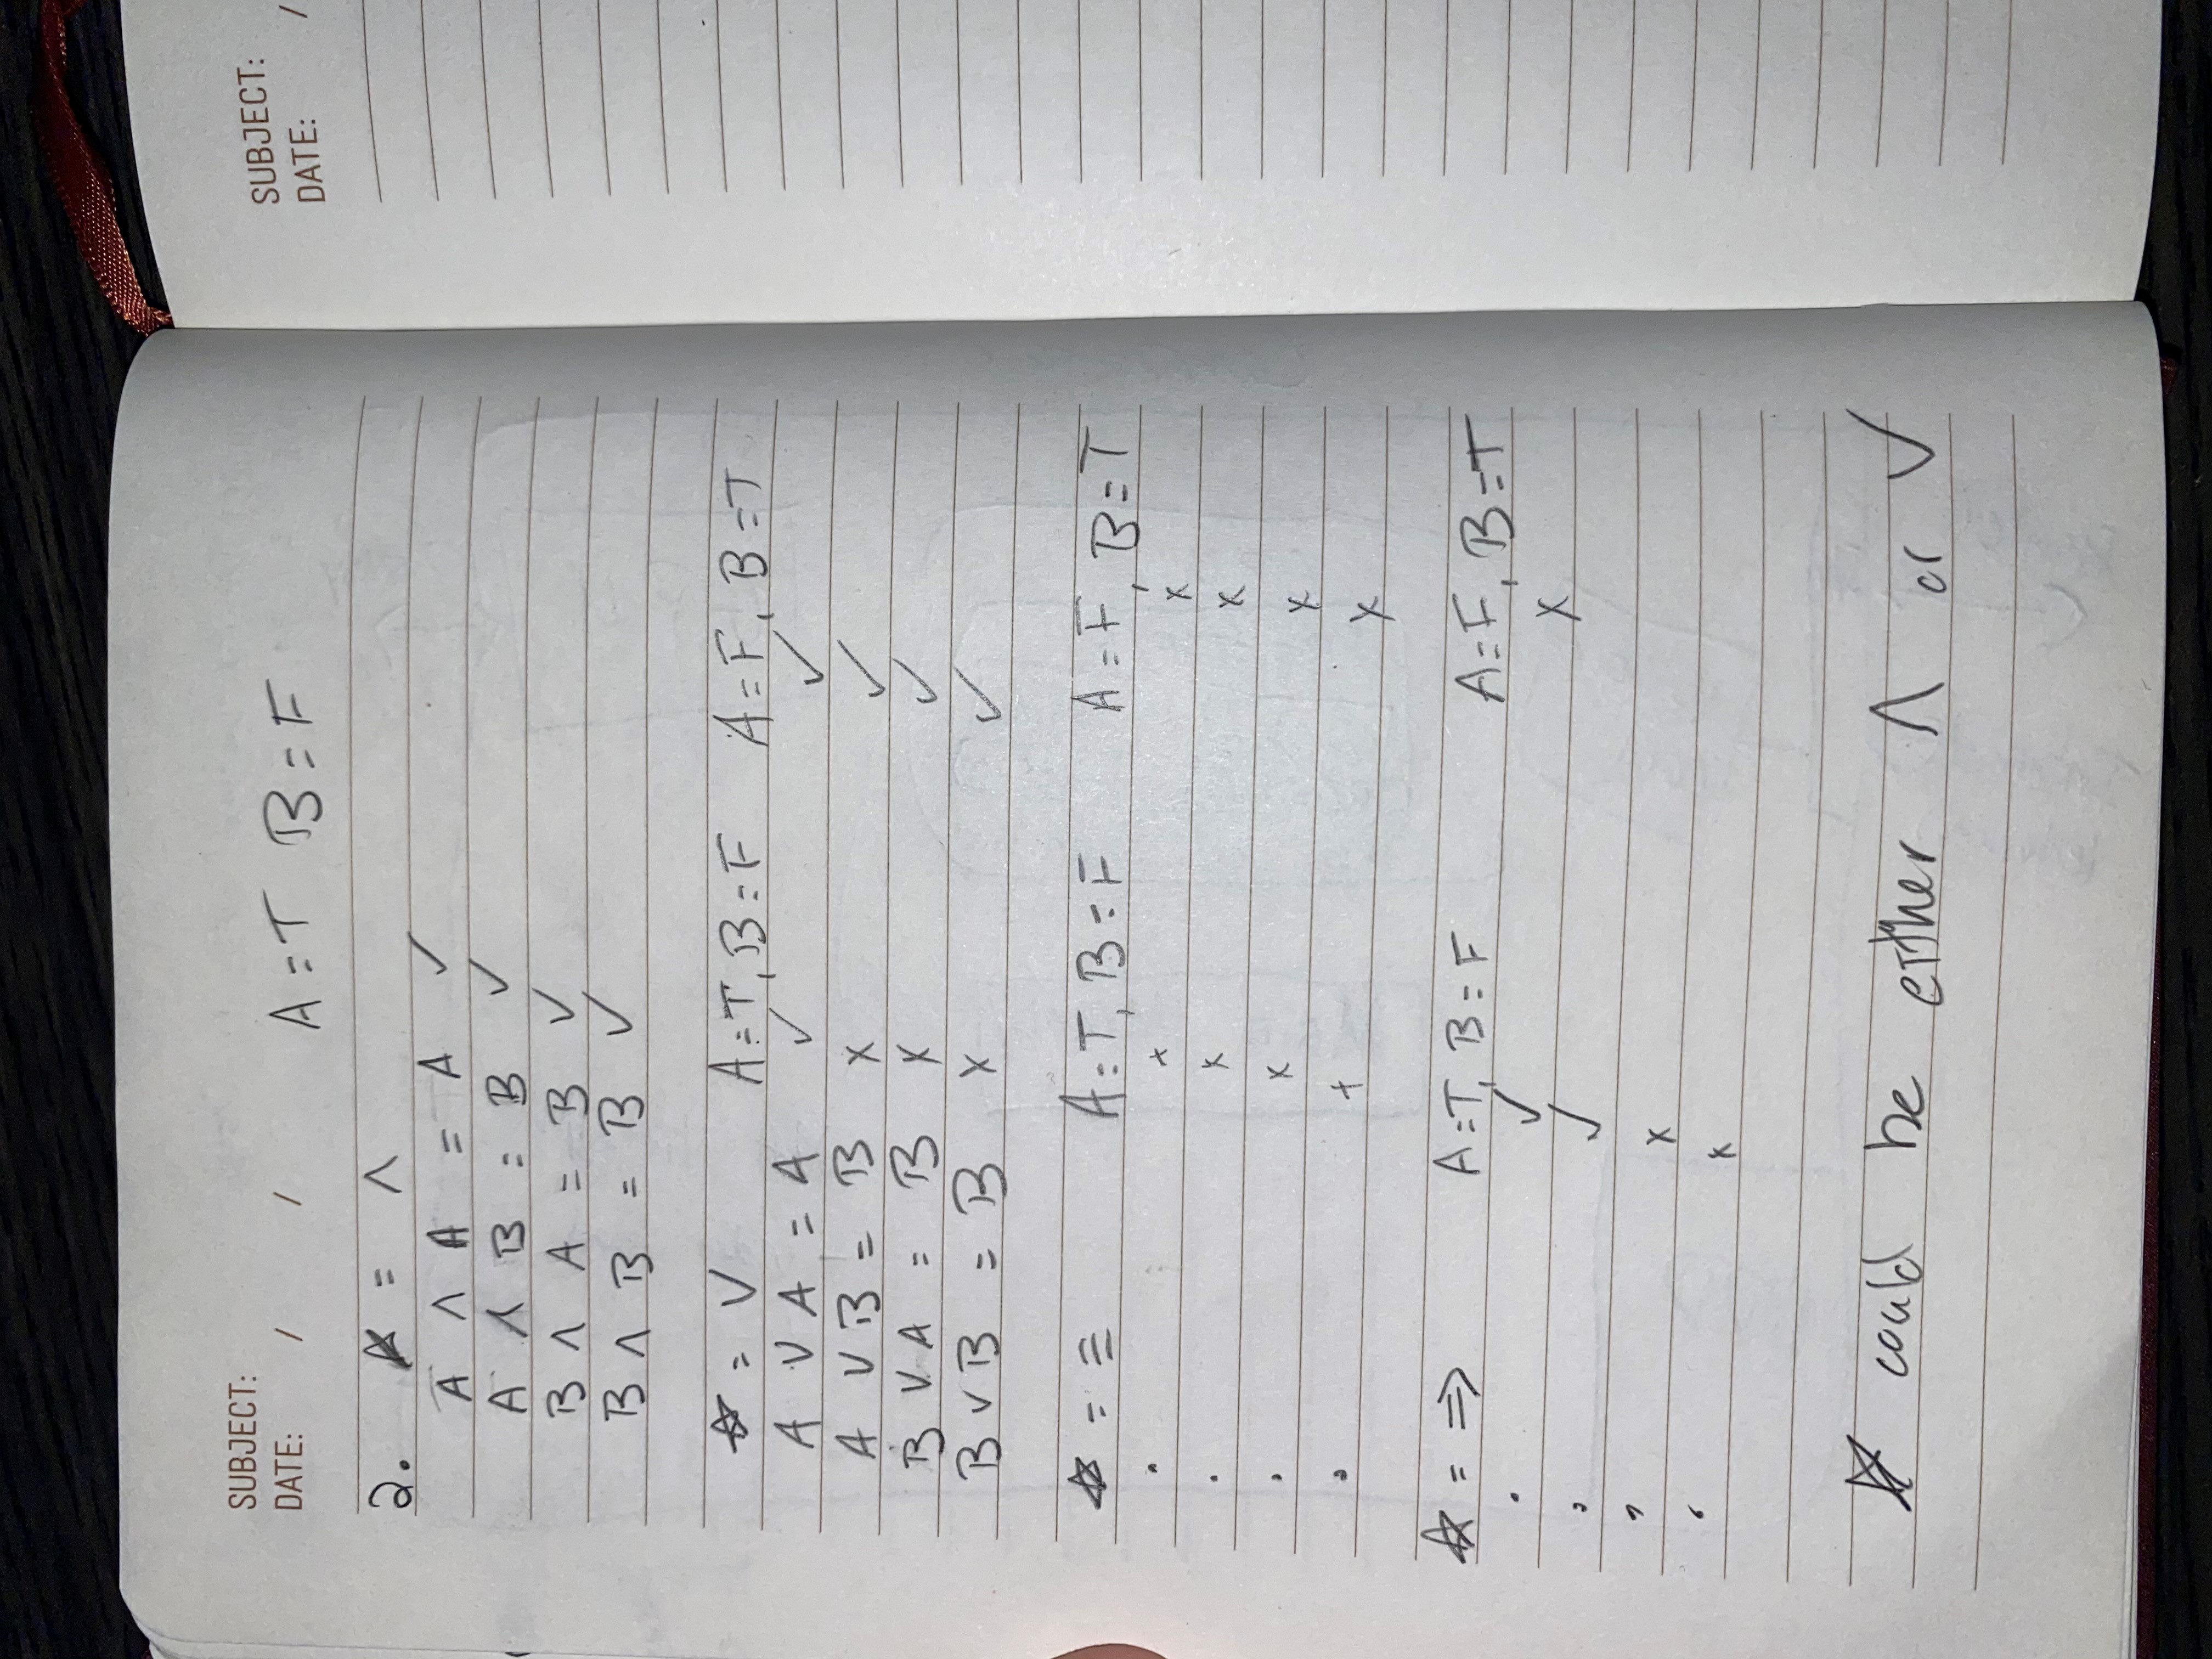 SUBJECT:
DATE: / /
A = T B = F
2. ☆ = ∧
A ∧ A = A ✓
A ∧ B = B ✓
B ∧ A = B ✓
B ∧ B = B ✓
☆ = ∨ A = T, B = F A = F, B = T
A ∨ A = A ✓ ✓
A ∨ B = B x ✓
B ∨ A = B x ✓
B ∨ B = B x ✓
☆ = ≡ A = T, B = F A = F, B = T
. x x
. x x
. x x
. x x
☆ = ⇒ A = T, B = F A = F, B = T
. ✓ x
. ✓
. x
. x
☆ could be either ∧ or ∨
SUBJECT:
DATE: /